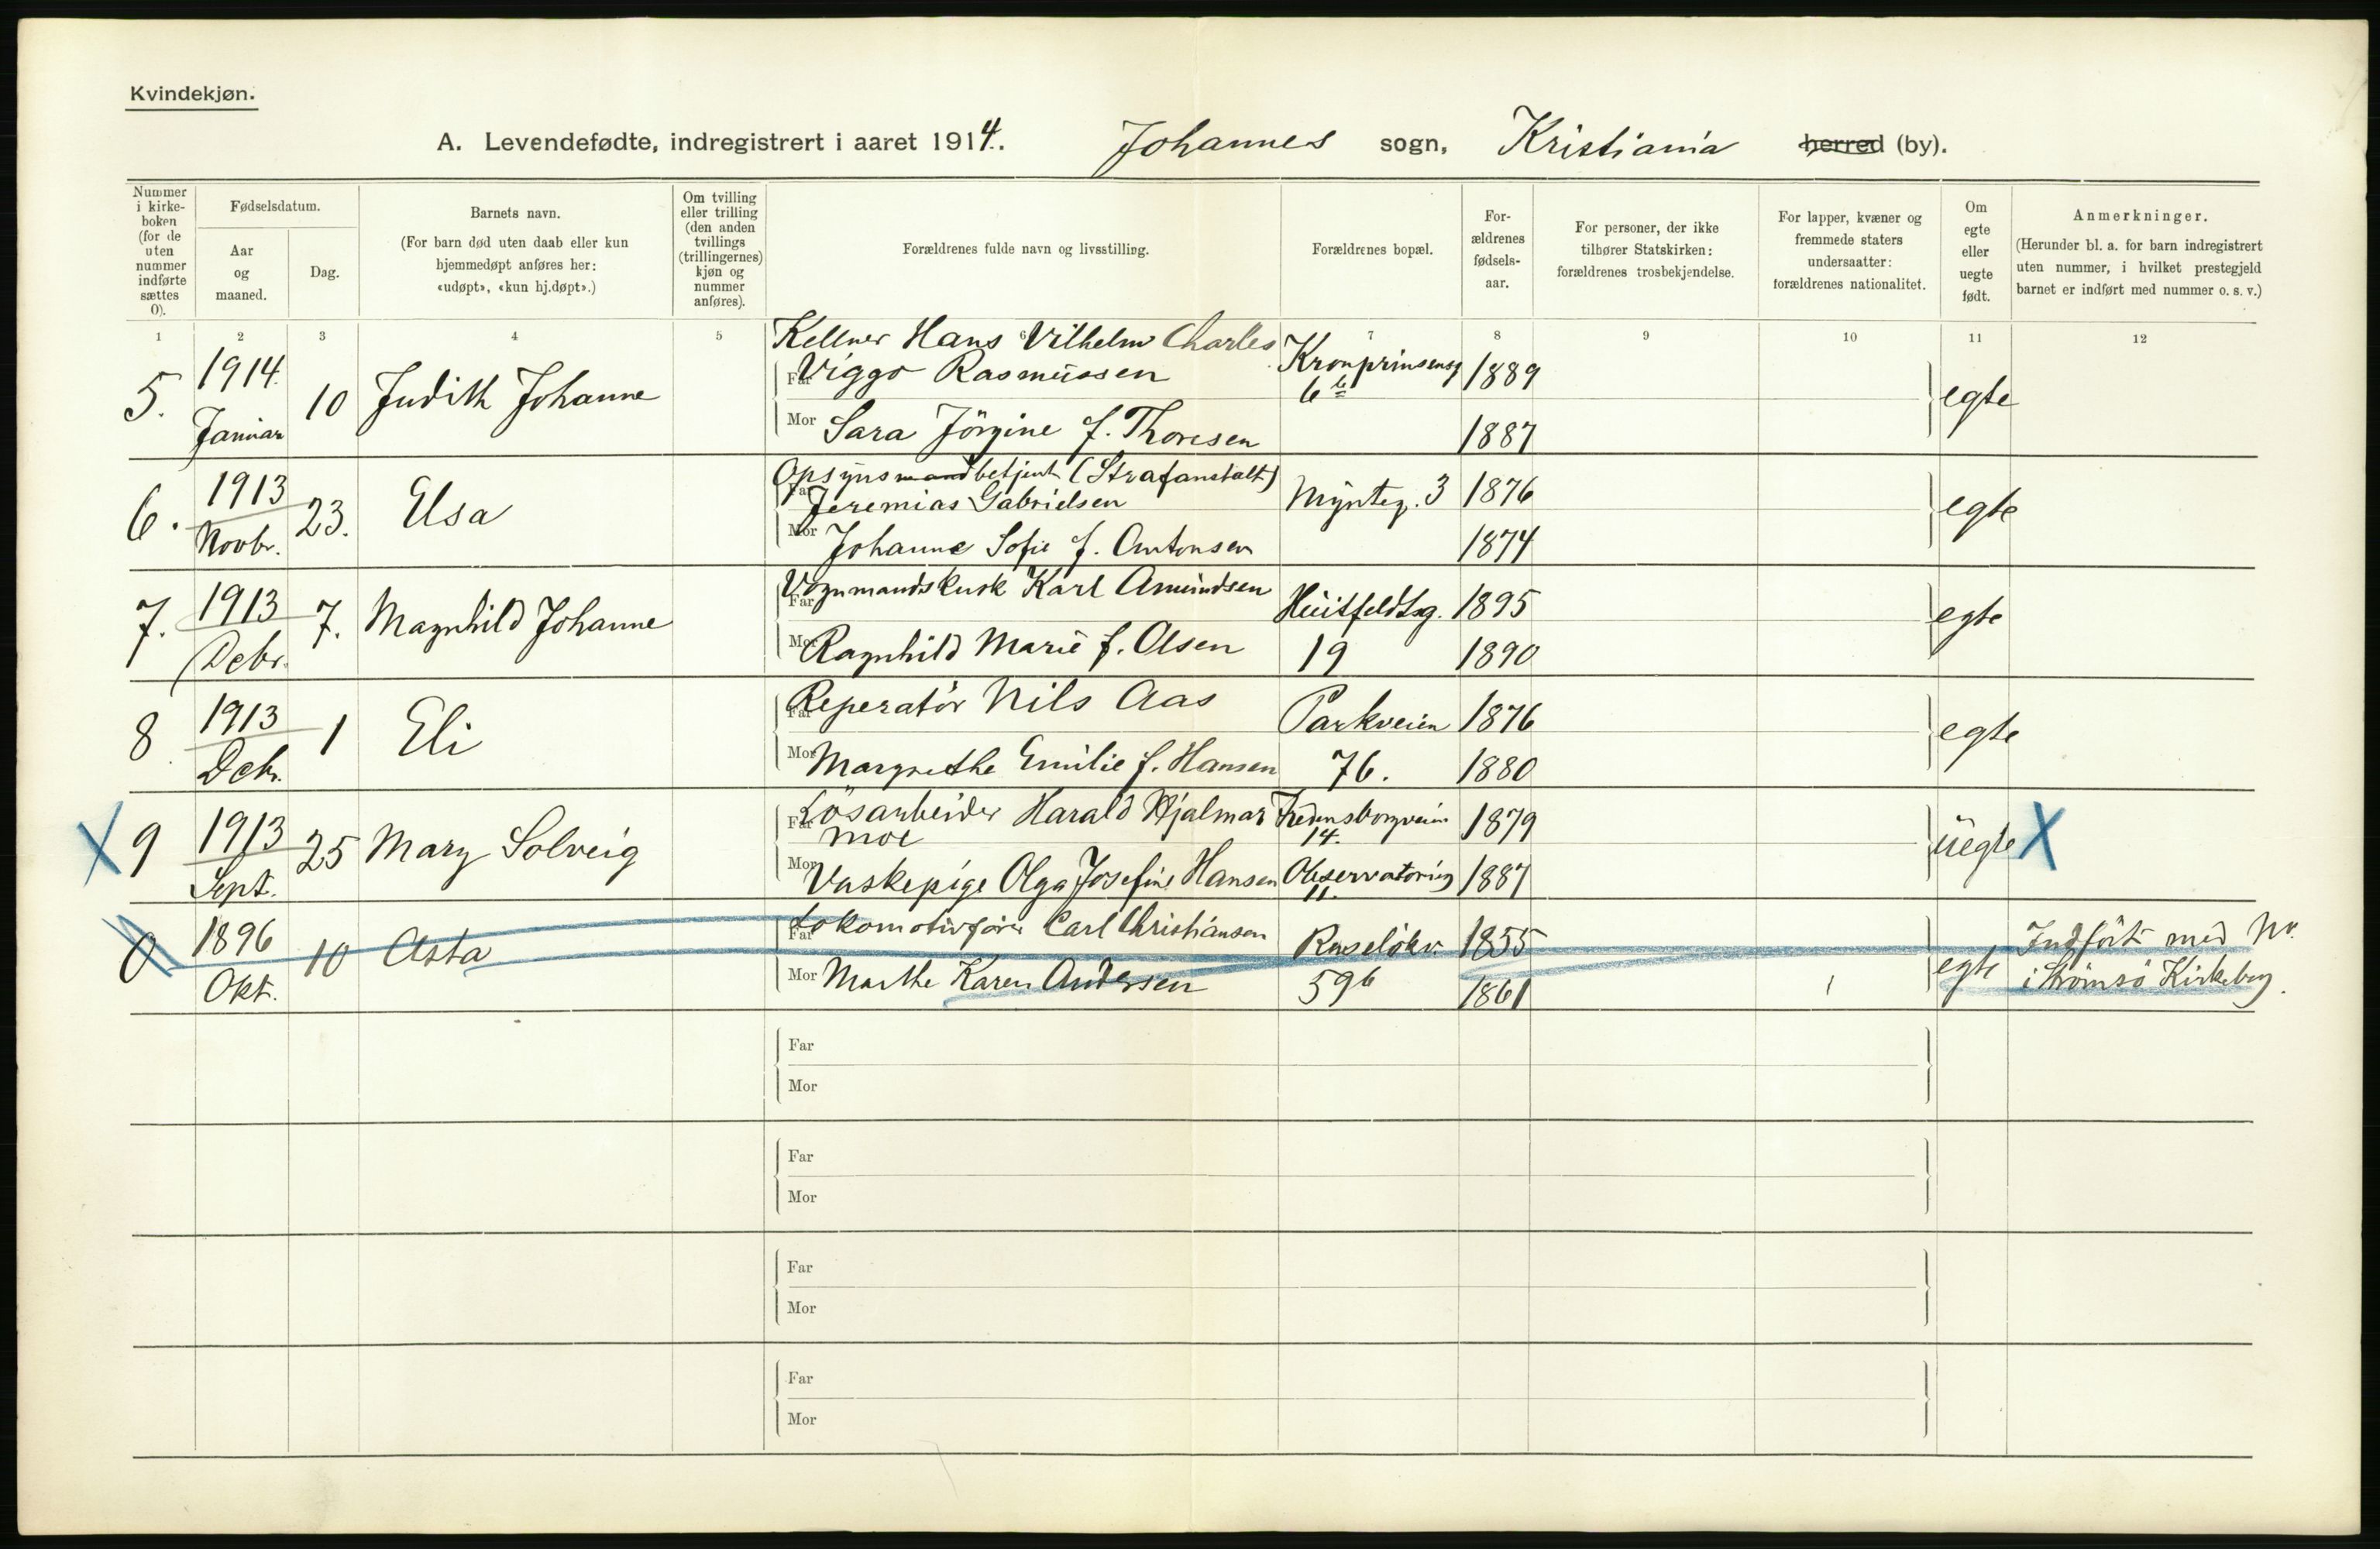 Kvindekjøn.
A. Levendefødte, indregistrert i aaret 1914. Johannes sogn, Kristiania herred (by).
Nummer i kirke-boken (for de uten nummer indførte sættes 0).
Fødselsdatum.
Aar og maaned.
Dag.
Barnets navn.
(For barn død uten daab eller kun hjemmedøpt anføres her: «udøpt», «kun hj.døpt».)
Om tvilling eller trilling (den anden tvillings (trillingernes) kjøn og nummer anføres).
Forældrenes fulde navn og livsstilling.
Forældrenes bopæl.
For-ældrenes fødsels-aar.
For personer, der ikke tilhører Statskirken: forældrenes trosbekjendelse.
For lapper, kvæner og fremmede staters undersaatter: forældrenes nationalitet.
Om egte eller uegte født.
Anmerkninger.
(Herunder bl. a. for barn indregistrert uten nummer, i hvilket prestegjeld barnet er indført med nummer o. s. v.)
1 2 3 4 5 6 7 8 9 10 11 12
5. 1914. Januar 10 Judith Johanne
Kellner Hans Vilhelm Charles
Far Viggo Rasmussen Kronprinsensg 6b 1889 egte
Mor Sara Jörgine f. Thoresen 1887
6. 1913 Novbr. 23. Elsa
Opsynsmandbetjent (Strafanstalt)
Far Jeremias Gabrielsen Myntg. 3 1876 egte
Mor Johanne Sofie f. Antonsen 1874
7. 1913 Debr. 7. Magnhild Johanne
Far Vognmandskusk Karl Amundsen Huitfeldtsg. 1895 egte
Mor Ragnhild Marie f. Olsen 19 1890
8 1913 Debr. 1 Eli
Far Reperatör Nils Aas Parkveien 1876 egte
Mor Margrethe Emilie f. Hansen 76. 1880
X 9 1913 Sept. 25 Mary Solveig
Far Lösarbeider Harald Hjalmar Moe Fredensborgveien 14. 1879 uegte X
Mor Vaskepige Olga Josefine Hansen Observatorieg 11. 1887
0 1896 Okt. 10 Asta
Far Lokomotivförer Carl Christiansen Ruselökv. 1855 egte Indfört med Nr.
Mor Marthe Karen Andersen 59b 1861 i Strömsö Kirkebog.
Far
Mor
Far
Mor
Far
Mor
Far
Mor